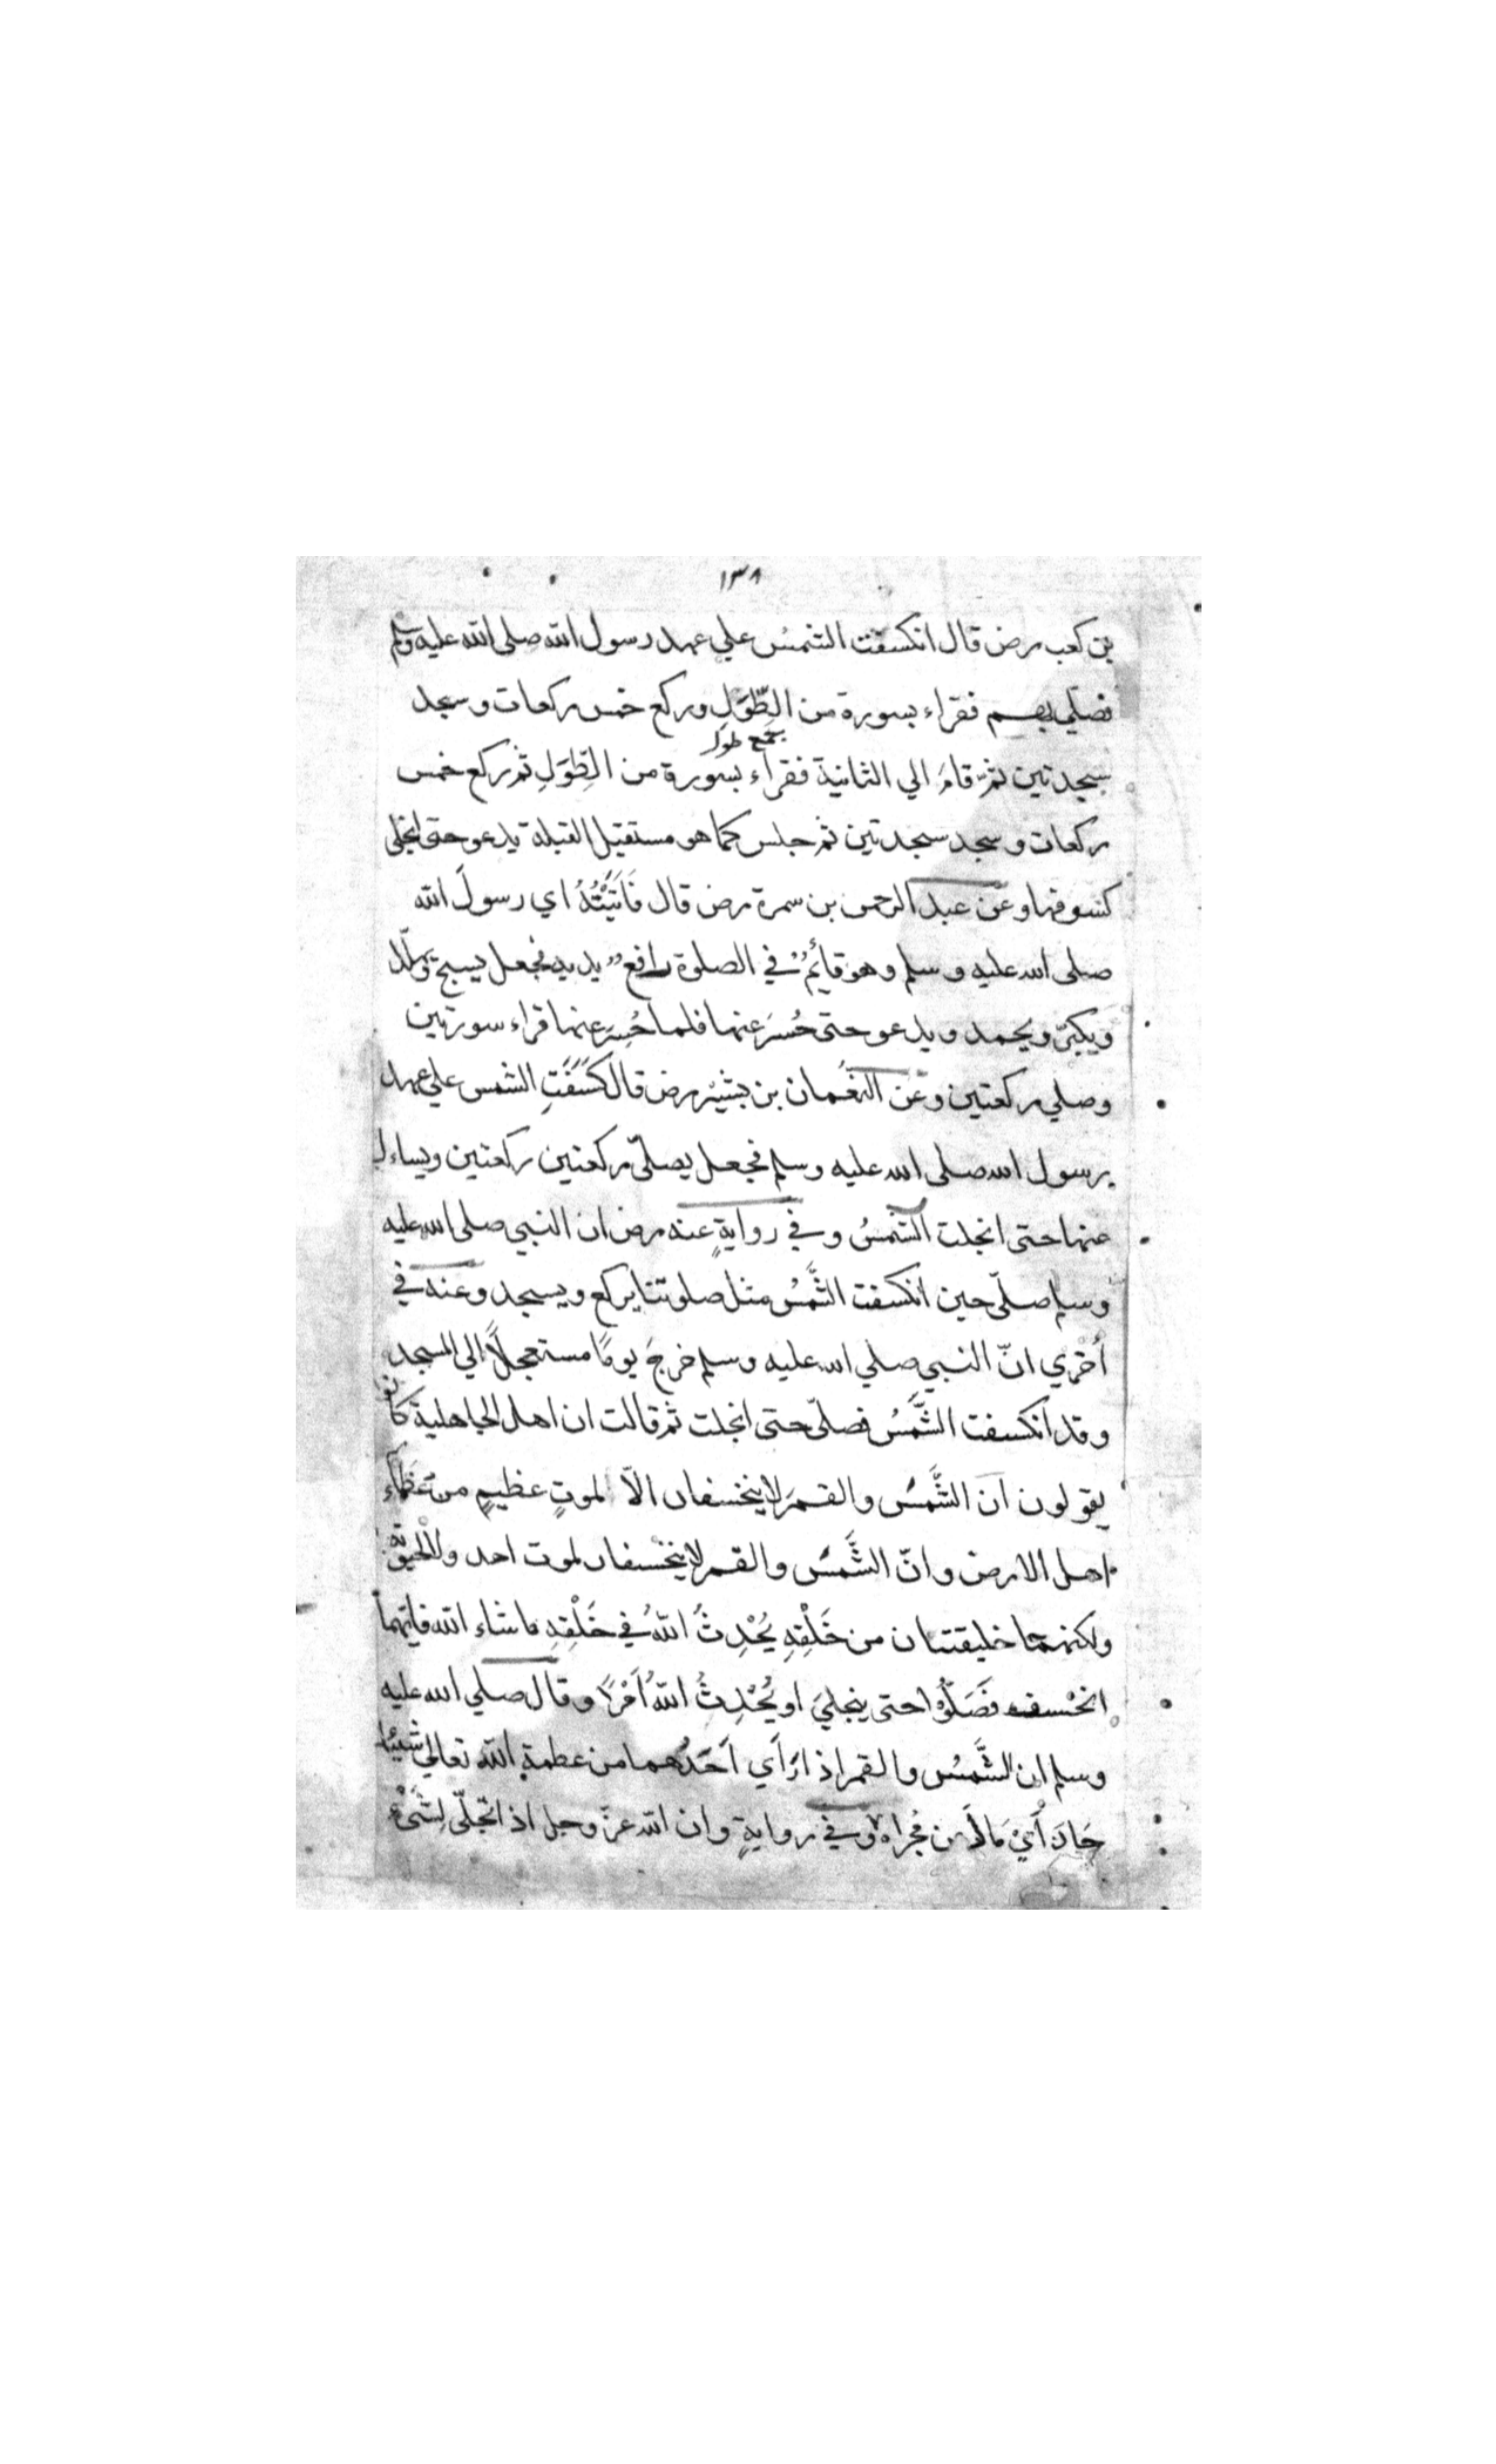 ١٣٨
بن كعب رض قال انكسفت الشمس علي عهد رسول الله صلى الله عليه وسلم
فصلي بهم فقراء بسورة من الطِّوَلِ وركع خمس ركعات وسجد
بجمع طول
سجدتين ثمّ قامَ الي الثانية فقراء بسورة من الطِّوَلِ ثم ركع خمس
ركعات وسجد سجدتين ثم جلس كما هو مستقبل القبلة يدعو حتى انجلى
كسوفها وعن عبد الرحمن بن سمرة رض قال فَاَتَيْتُهُ اي رسولَ الله
صلى الله عليه وسلم وهو قائمٌ في الصلوة رافعٌ يديه فجعل يسبح ويهلّل
ويكبّر ويحمد ويدعو حتى حُسِرَ عنها فلما حُسِرَ عنها قراء سورتين
وصلي ركعتين وعن النعُمان بن بشيْر رض قال كَسَفَتِ الشمس علي عهد
رسول الله صلى الله عليه وسلم فجعل يصلّي ركعتين ركعتين ويساءل
عنها حتى انجلت الشمسُ وفي روايةٍ عنه رض ان النبي صلى الله عليه
وسلم صلّى حين انكسفت الشَّمسُ مثل صلوتنا يركع ويسجد وعنه في
أخري انّ النبي صلي الله عليه وسلم خرجَ يومًا مستعجلًا الي المسجد
وقد انكسفت الشَّمسُ فصلّى حتى انجلت ثم قالت ان اهل الجاهلية كانوا
يقولون ان الشَّمسُ والقمرَ لا ينخسفان الّا لموتٍ عظيمٍ من عُظماء
اهل الارض وانّ الشَّمسُ والقمر لا ينخسفان لموت احد ولا لحيوته
ولكنهما خليقتان من خَلْقِهِ يُحْدِثُ اللهُ في خَلْقِهِ ما شاء الله فايّهما
انخسف فَصَلُّوْا حتى ينجليَ او يُحْدِثُ اللهُ اَمْرًا وقال صلي الله عليه
وسلم ان الشَّمسُ والقمر اذا رَاَي اَحَدُهما من عظمة الله تعالي شيئا
حَادَ أَيْ مَالَ من مُجراه وفي روايةٍ وان الله عزّ وجل اذا تجلّى لِشَيْءٍ